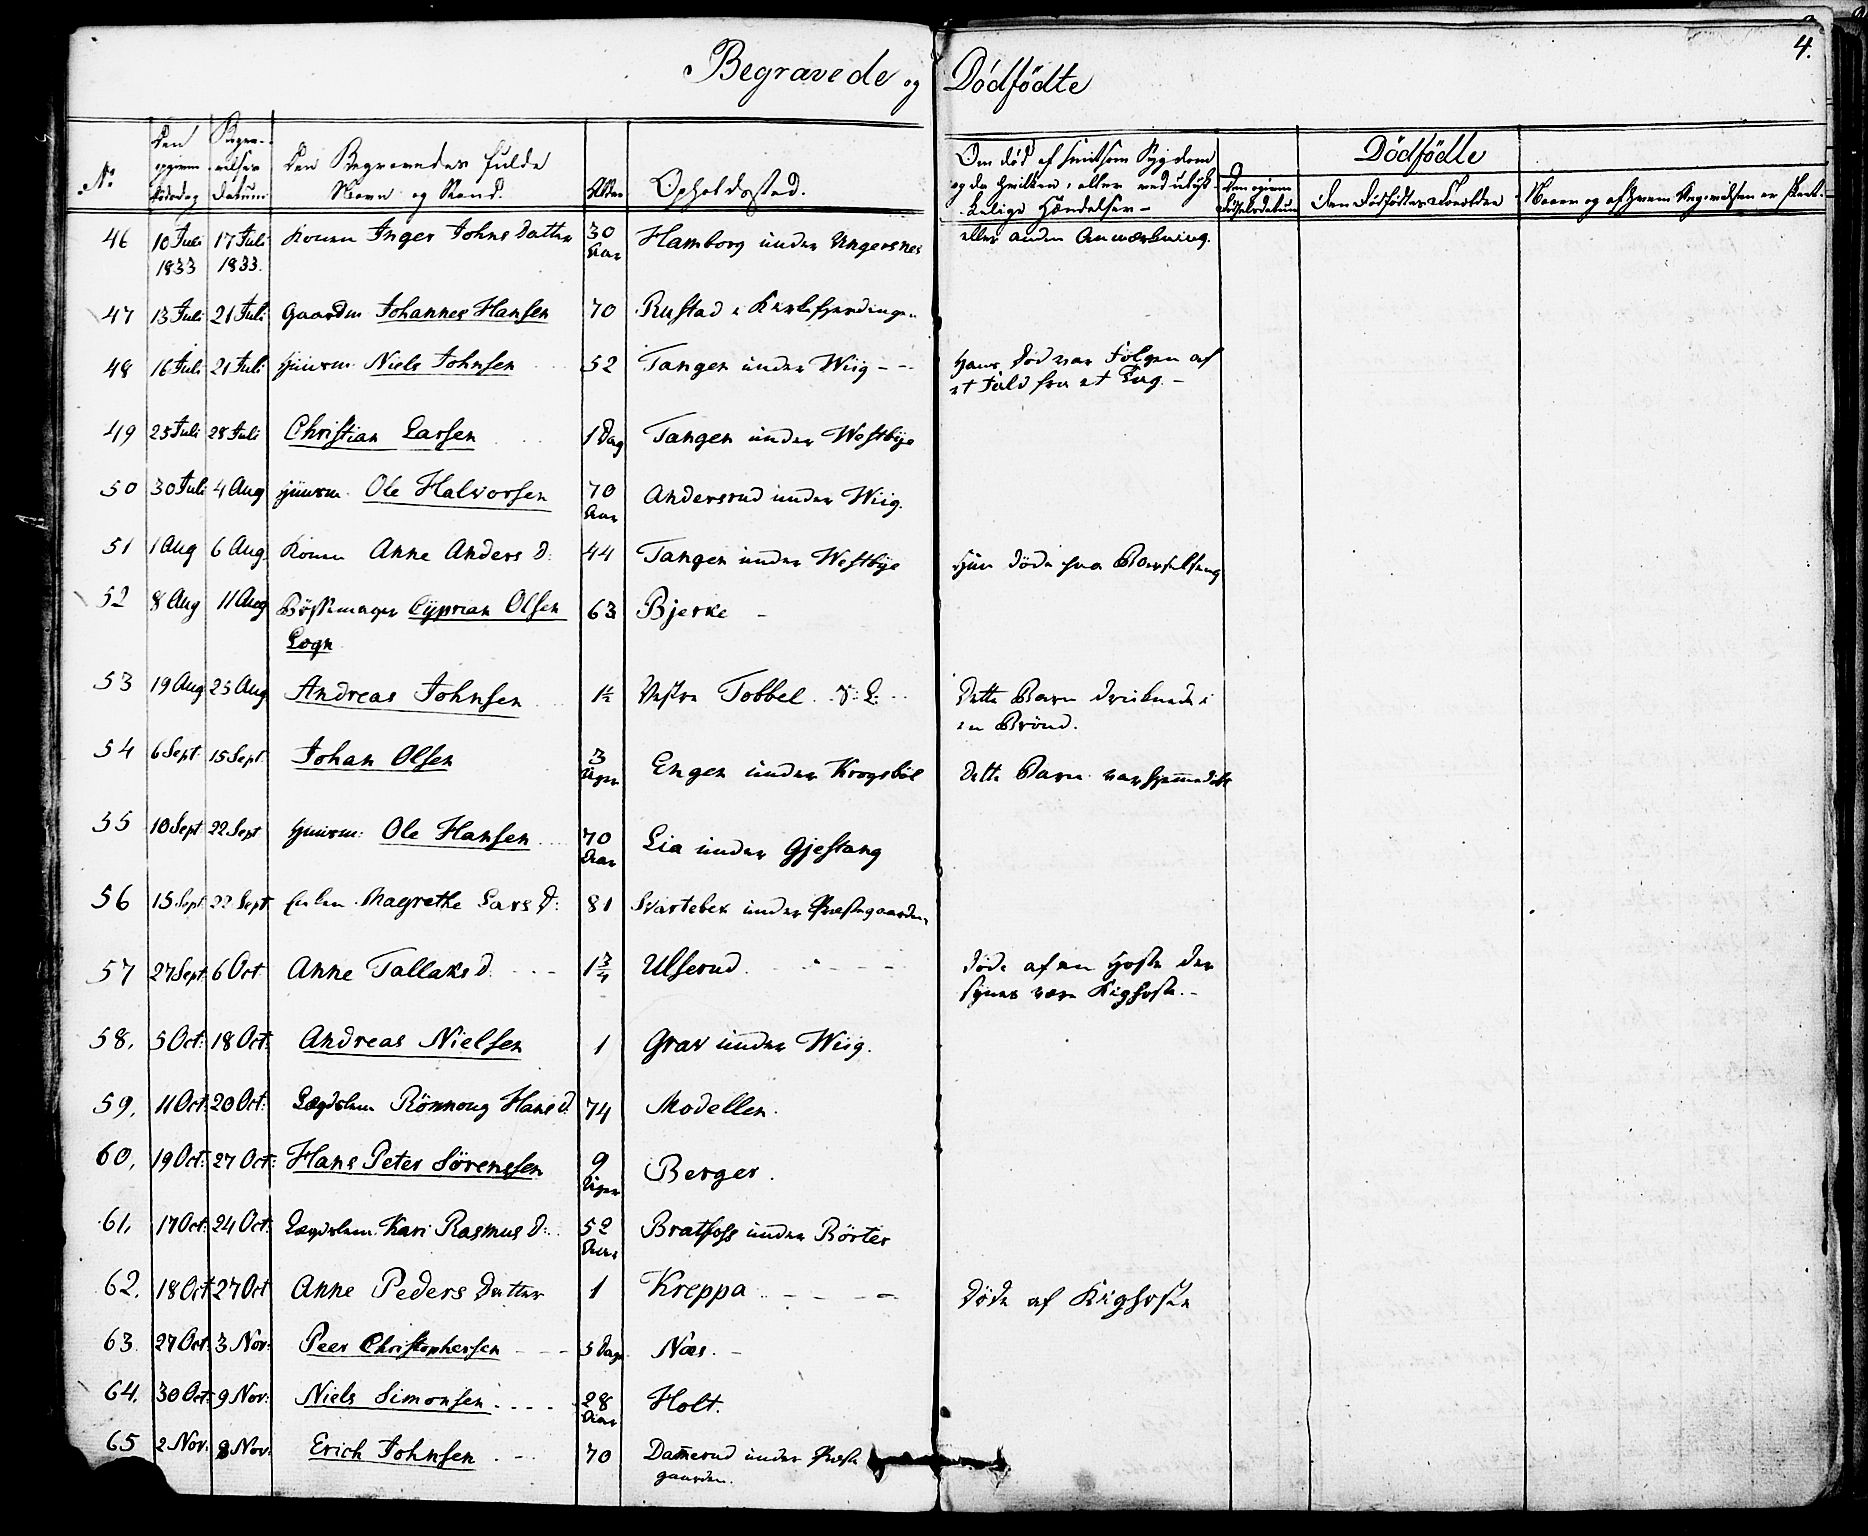 4.
Begravede og Dödfödte
No
Den opgivne Dödsdag
Begravelses Datum
Den Begravedes fulde Navn og Stand.
Alder
Opholdssted.
Om död af smitsom Sygdom
og da hvilken, eller ved ulyk-
kelige Hændelser -
eller anden Anmærkning.
Dödfödte
Den opgivne Födselsdatum
Den Dödfödtes Forældre
Navn og af hvem Angivelsen er skeet.
46 10 Juli 1833 17 Juli 1833. Konen Inger Johns Datter 30 Aar Hamborg under Ungersnes
47 13 Juli 21 Juli Gaardm Johannes Hansen 70 Rustad i Kirkefjerdingen
48 16 Juli 21 Juli Huusm. Niels Johnsen 52 Tangen under Wiig - - Hans Död var Fölgen af
et Fald fra et Tag. -
49 25 Juli 28 Juli Christian Larsen 1 Dag Tangen under Westbÿe
50 30 Juli 4 Aug Huusm. Ole Halvorsen 70 Aar Andersrud under Wiig.
51 1 Aug 6 Aug. Konen Anne Anders D: 44 Tangen under Westbÿe Hun döde paa Barselseng
52 8 Aug 11 Aug Bössemager Cÿprian Olsen 63 Bjerke -
Logn
53 19 Aug 25 Aug Andreas Johnsen 1½ Vestre Tobbel Dette Barn druknede i
en Brönd.
54 6 Sept. 15 Sept. Johan Olsen 3 Uger Engen under Krogsböl Dette Barn var hjemmedöbt
55 10 Sept 22 Sept Huusm: Ole Hansen 70 Aar Lia under Gjestang
56 15 Sept 22 Sept Enken Magrethe Lars D: 81 Svartebek under Præstegaarden
57 27 Sept 6 Oct Anne Tallaks D. 1¾ Ulserud döde af en Hoste der
synes være Kighoste. -
58. 5 Oct: 18 Oct: Andreas Nielsen 1 Grav under Wiig.
59. 11 Oct: 20 Oct: Lægdslem Rönnoug Hans D. 74 Modellen.
60. 19 Oct: 27 Oct: Hans Peter Sörenssen 9 Uger Berger.
61. 17 Oct: 24 Oct: Lægdslem. Kari Rasmus D: 52 Aar Bratfoss under Börter
62. 18 Oct 27 Oct Anne Peders Datter 1 Kreppa Döde af Kighoste
63. 27 Oct 3 Nov: Peer Christophersen 5 Dage Næs. -
64. 30 Oct: 9 Nov: Niels Simonsen 28 Aar Holt.
65 2 Nov: 8 Nov: Erich Johnsen 70 Damerud under Præste
gaarden.